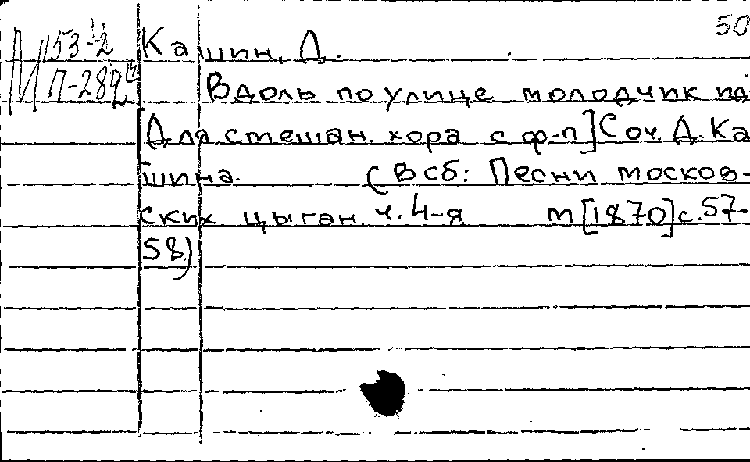 50
М 53 1/2 Кашин, Д.
П-289 Вдоль по улице молодчик ид
[Для смешан. хора с ф-п] Соч. Д. Ка
шина. (В сб: Песни москов-
ских цыган. ч. 4-я м [1870] с. 57-
58)